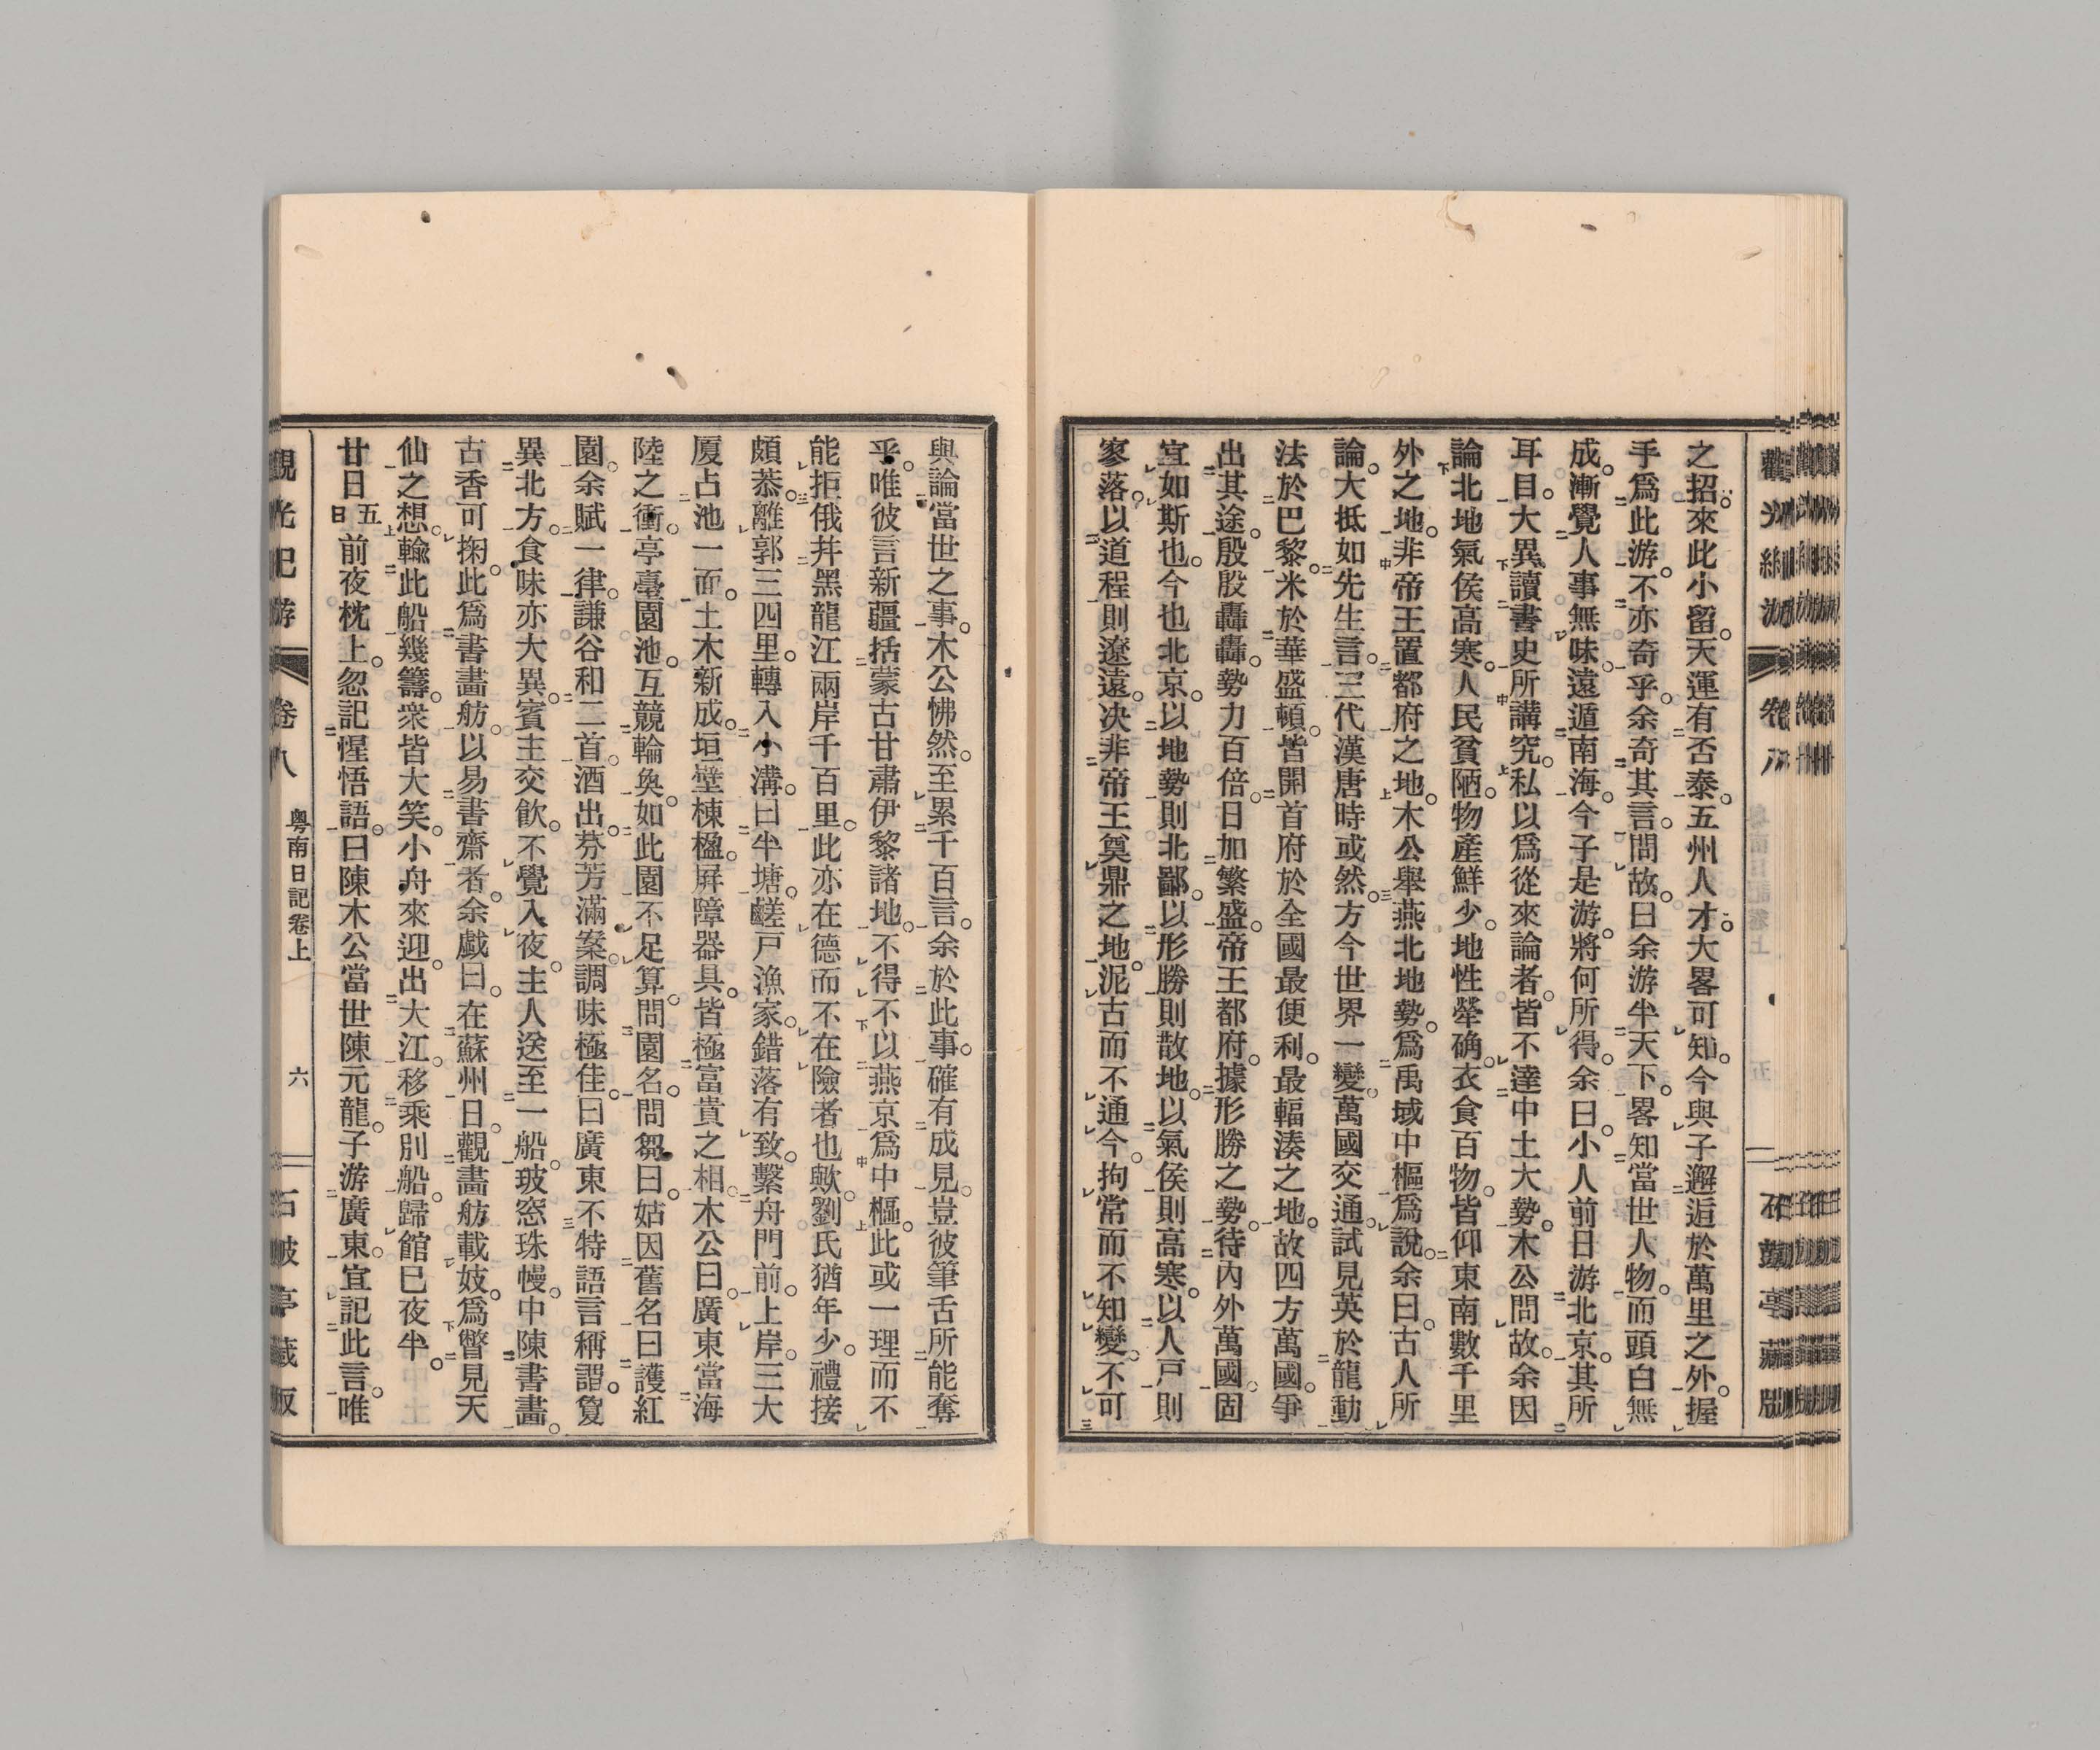 之招。來此小留。天運有否泰。五州人才。大畧可知。今與子邂逅於萬里之外。握
手爲此游。不亦奇乎。余奇其言。問故。曰余游半天下。畧知當世人物。而頭白無
成。漸覺人事無味。遠遁南海。今子是游。將何所得。余曰。小人前日游北京。其所
耳目。大異讀書史所講究。私以爲從來論者。皆不達中土大勢。木公問故。余因
論北地氣侯高寒。人民貧陋。物產鮮少。地性犖确。衣食百物。皆仰東南數千里
外之地。非帝王置都府之地。木公舉燕北地勢。爲禹域中樞爲說。余曰。古人所
論。大抵如先生言。三代漢唐時或然。方今世界一變。萬國交通。試見英於龍動
法於巴黎。米於華盛頓。皆開首府於全國最便利。最輻湊之地。故四方萬國。爭
出其途。殷殷轟轟。勢力百倍。日加繁盛。帝王都府。據形勝之勢。待內外萬國。固
宜如斯也。今也北京。以地勢則北鄙。以形勝則散地。以氣侯則高寒。以人戸則
寥落。以道程則遼遠。决非帝王奠鼎之地。泥古而不通今。拘常而不知變。不可
與論當世之事。木公怫然。至累千百言。余於此事。確有成見。豈彼筆舌所能奪
乎。唯彼言新疆括蒙古甘肅伊黎諸地。不得不以燕京爲中樞。此或一理而不
能拒俄幷黑龍江兩岸千百里。此亦在德而不在險者也歟。劉氏猶年少。禮接
頗恭。離郭三四里。轉入小溝。曰半塘。鹺戸漁家。錯落有致。繫舟門前。上岸。三大
厦占池一面。土木新成。垣壁棟楹。屛障器具。皆極富貴之相。木公曰。廣東當海
陸之衝。亭臺園池。互競輪奐。如此園不足算。問園名。問芻曰。姑因舊名曰護紅
園。余賦一律。謙谷和二首。酒出。芬芳滿案。調味極佳。曰廣東不特語言稱謂。夐
異北方。食味亦大異。賓主交飮。不覺入夜。主人送至一船。玻窓珠幔。中陳書畫。
古香可掬。此爲書畵舫。以易書齋者。余戲曰。在蘇州日。觀畵舫載妓。爲瞥見天
仙之想。輸此船幾籌。衆皆大笑。小舟來迎。出大江。移乘別船。歸館已夜半。
廿日五日前夜枕上。忽記惺悟語。曰陳木公當世陳元龍。子游廣東。宜記此言。唯
觀光紀游
卷八
粤南日記卷上
六
石皷亭藏版